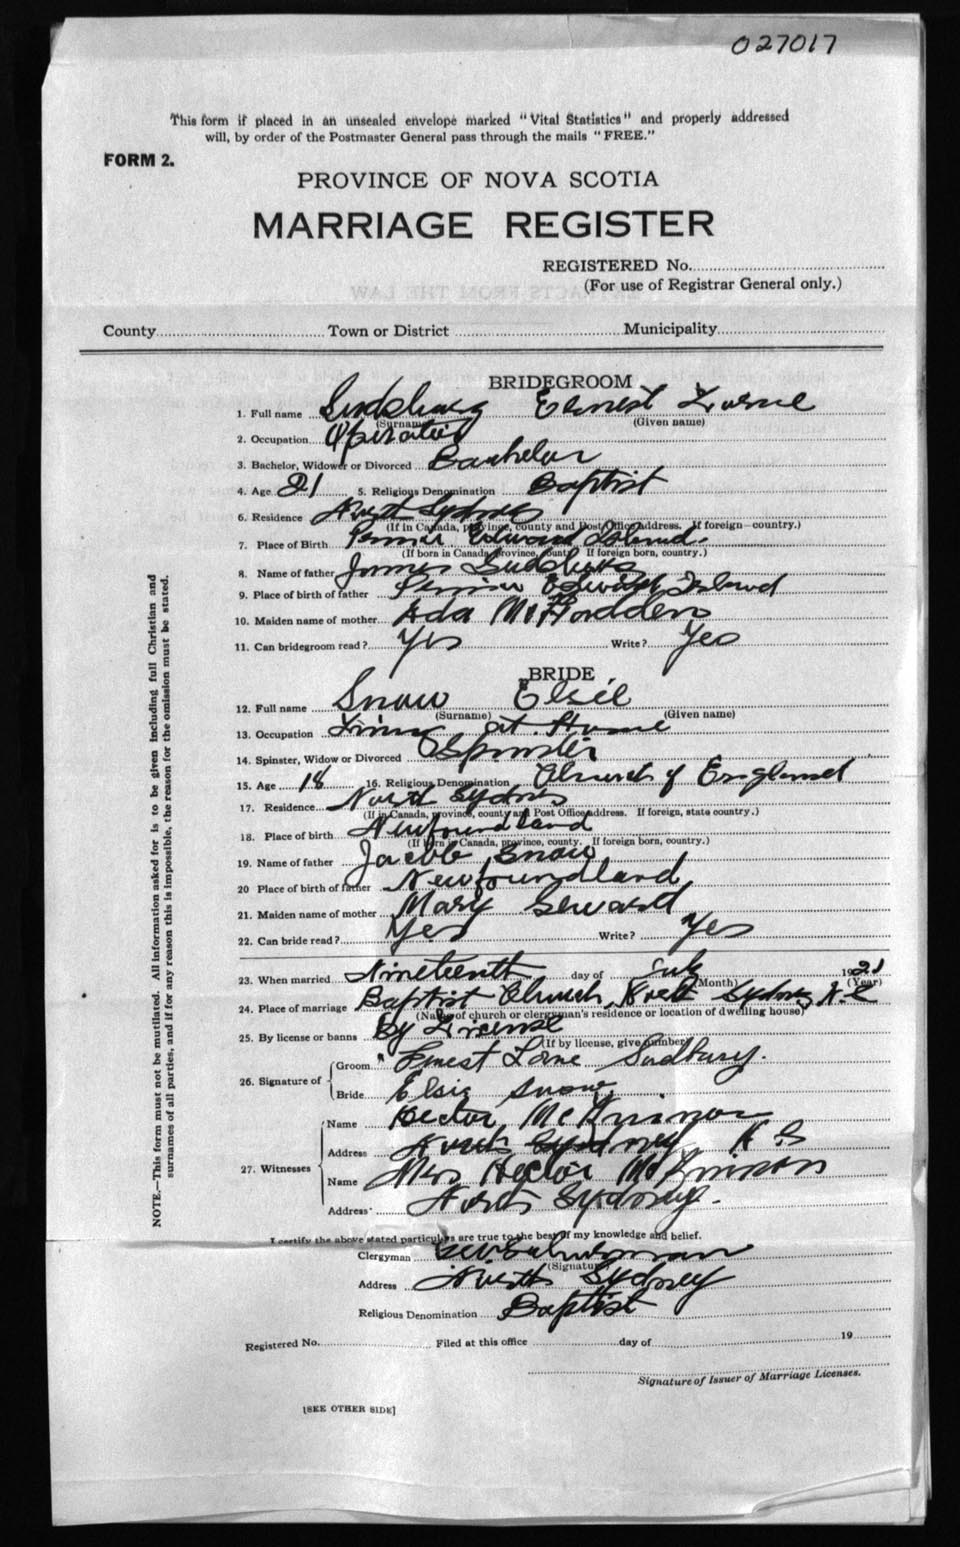 027017
This form if placed in an unsealed envelope marked "Vital Statistics" and properly addressed
will, by order of the Postmaster General pass through the mails "FREE."
FORM 2.
PROVINCE OF NOVA SCOTIA
MARRIAGE REGISTER
REGISTERED No.
(For use of Registrar General only.)
County Town or District Municipality
BRIDEGROOM
1. Full name Ernest Lorne
(Surname) (Given name)
2. Occupation
3. Bachelor, Widower or Divorced Bachelor
4. Age 21 5. Religious Denomination Baptist
6. Residence North Sydney
(If in Canada, province, county and Post Office address. If foreign—country.)
7. Place of Birth Prince Edward Island
(If born in Canada, province, county. If foreign born, country.)
8. Name of father James
9. Place of birth of father Prince Edward Island
10. Maiden name of mother Ada
11. Can bridegroom read? Yes Write? Yes
BRIDE
12. Full name Snow Elsie
(Surname) (Given name)
13. Occupation Living at Home
14. Spinster, Widow or Divorced Spinster
15. Age 18 16. Religious Denomination Church of England
17. Residence North Sydney
(If in Canada, province, county and Post Office address. If foreign, state country.)
18. Place of birth Newfoundland
(If born in Canada, province, county. If foreign born, country.)
19. Name of father Jacob Snow
20 Place of birth of father Newfoundland
21. Maiden name of mother Mary Seward
22. Can bride read? Yes Write? Yes
23. When married Nineteenth day of July 1921
(Month) (Year)
24. Place of marriage Baptist Church, North Sydney N.S
(Name of church or clergyman's residence or location of dwelling house)
25. By license or banns By License
(If by license, give number)
26. Signature of Groom Ernest Lorne Sudbury.
Bride Elsie Snow
27. Witnesses Name Hector McKinnon
Address North Sydney N.S
Name Mrs Hector McKinnon
Address North Sydney.
I certify the above stated particulars are true to the best of my knowledge and belief.
Clergyman
(Signature)
Address North Sydney
Religious Denomination Baptist
Registered No. Filed at this office day of 19
Signature of Issuer of Marriage Licenses.
[SEE OTHER SIDE]
NOTE.—This form must not be mutilated. All information asked for is to be given including full Christian and
surnames of all parties, and if for any reason this is impossible, the reason for the omission must be stated.